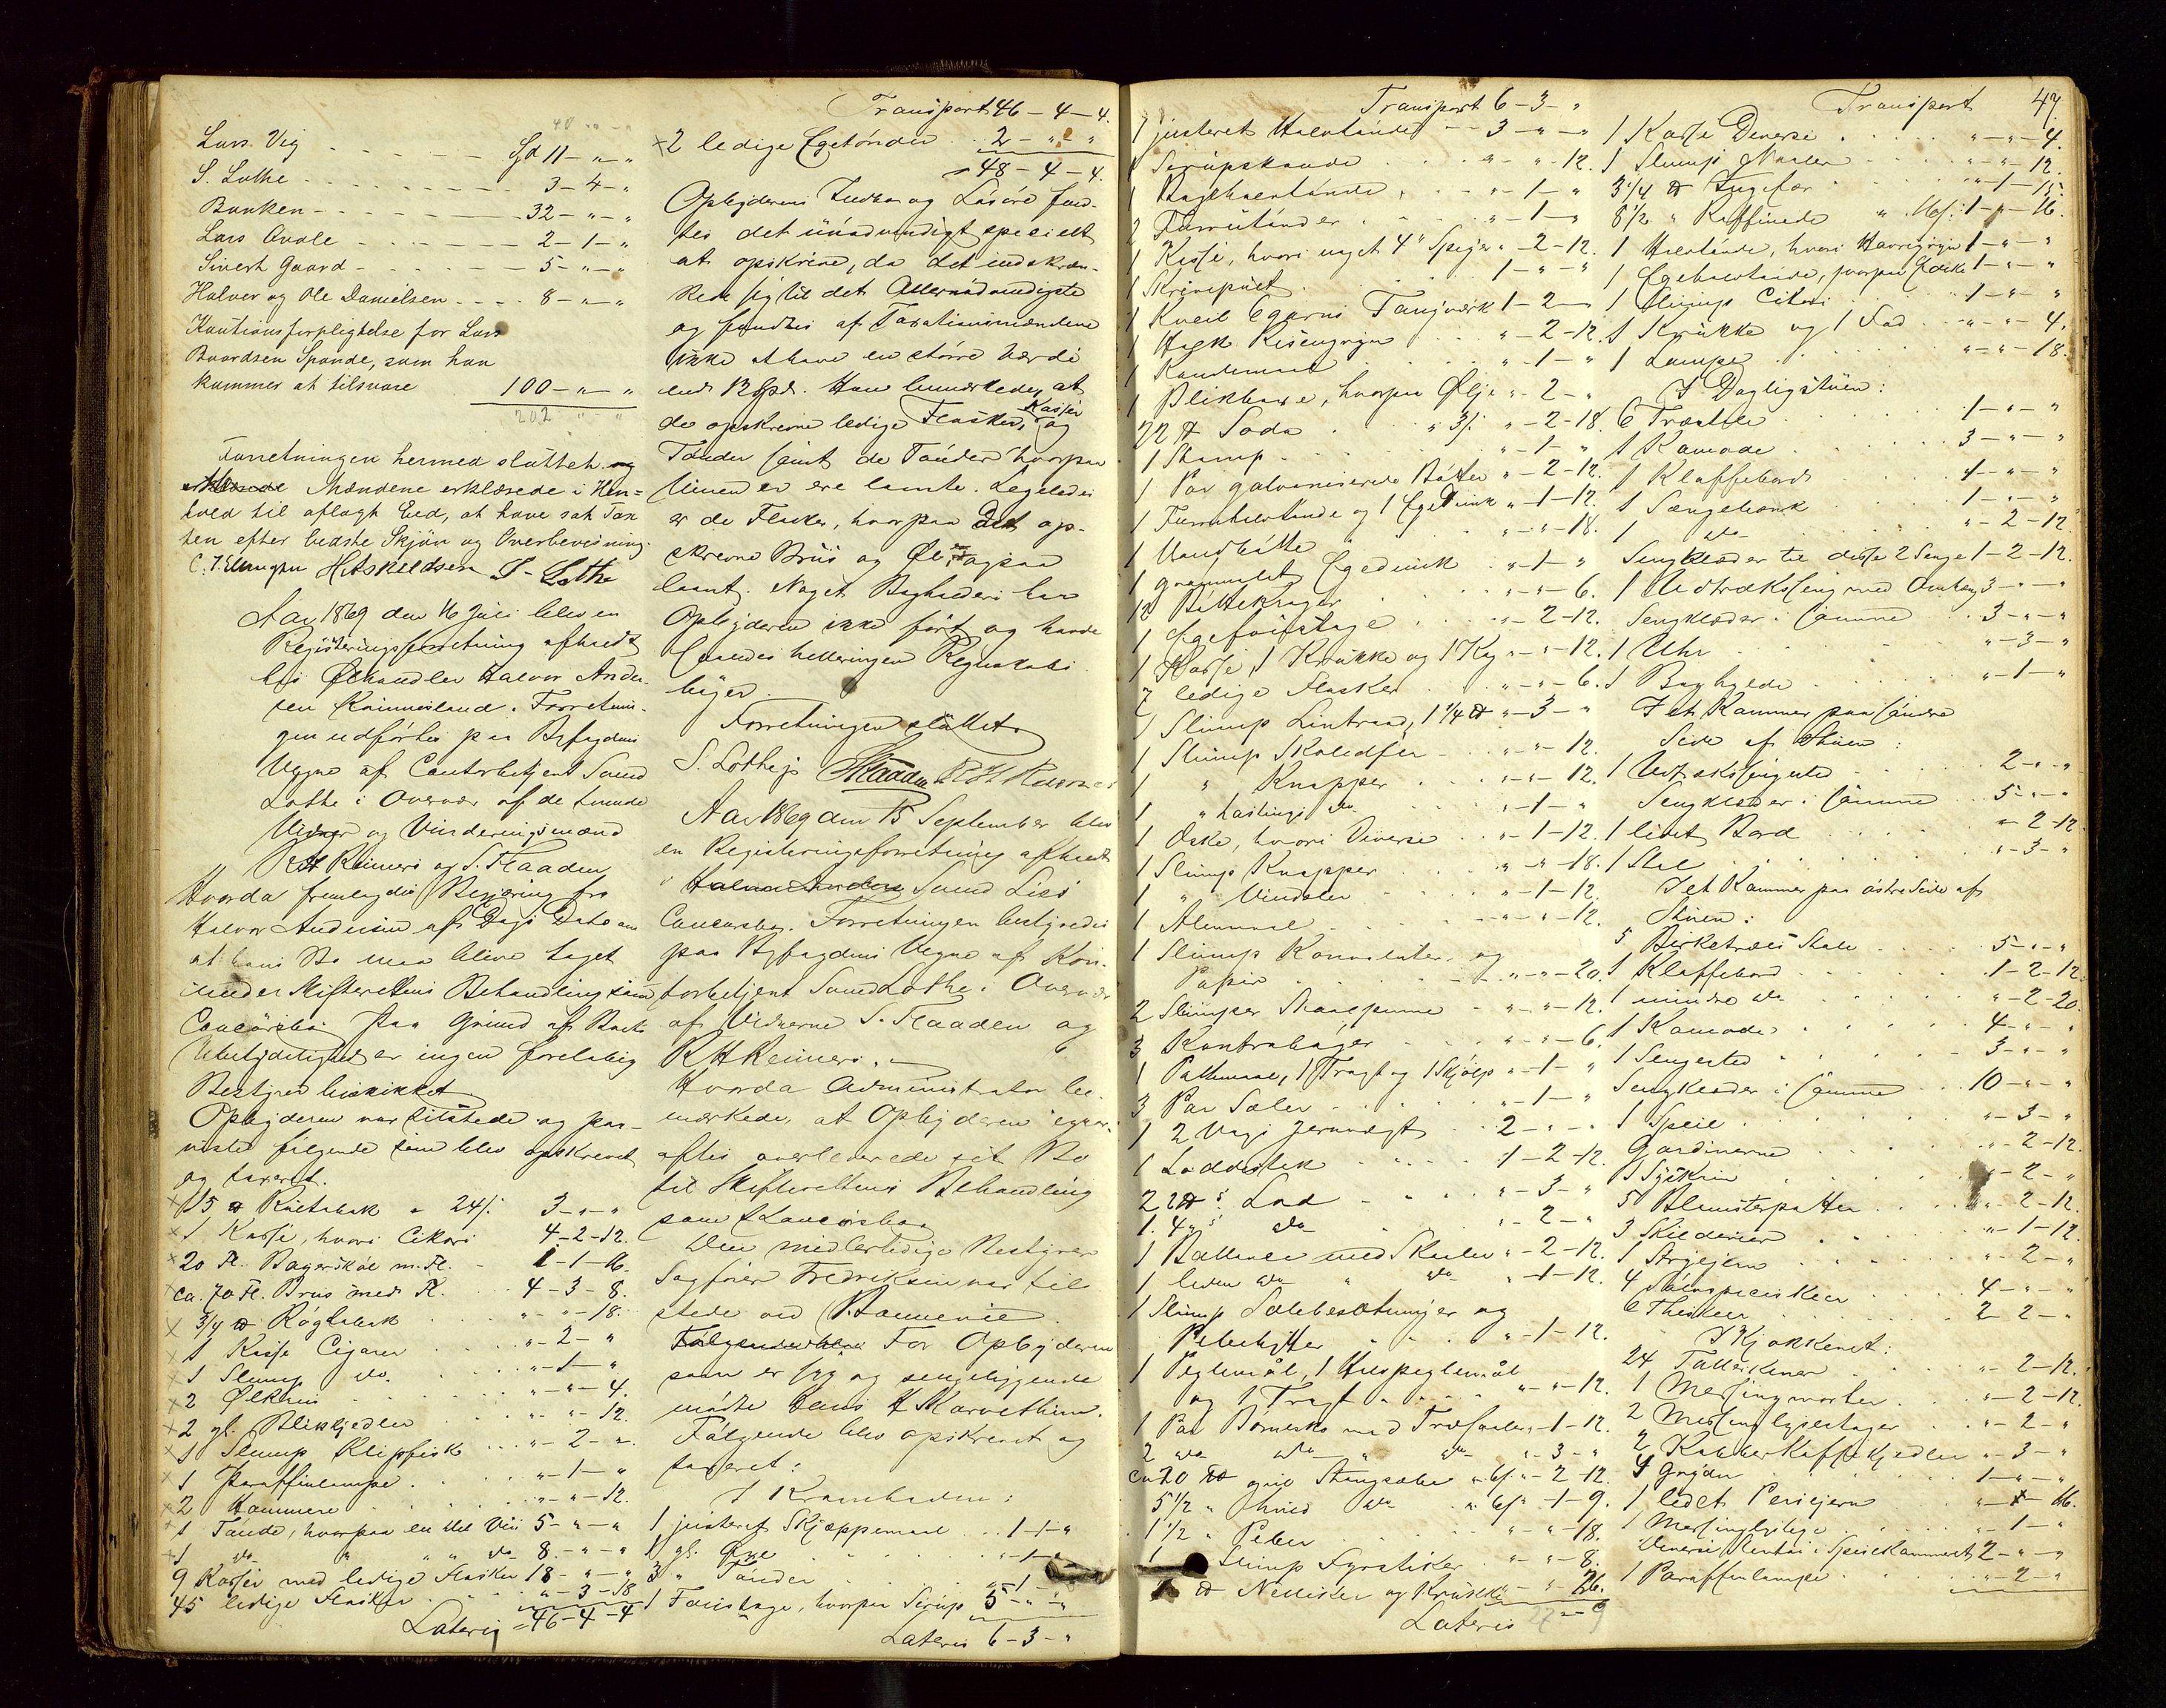 40 - " - "
Lars Vig - - - - - Spd 11 - " - "
S. Lothe - - - - - 3 - 4 - "
Banken - - - - - 32 - " - "
Lars Qvale - - - - - 2 - 1 - "
Sivert Gaard - - - - - 5 - " - "
Halvor og Ole Danielsen - - - - 8 - " - "
Kautionsforpligtelse for Lars
Baardsen Spande, som han
kommer at tilsvare 100 - " - "
202 " "
Forretningen hermed sluttet og
Mændene erklærede i Hen=
hold til aflagt Eed, at have sat Tax
ten efter bedste Skjøn og Overbevisning.
H. Askeldsen S. Lothe
Aar 1869 den 16 Juli blev en
Registreringsforretning afholdt
hos Ølhandler Halvor Ander-
sen Forretnin-
gen udførtes paa Byfogdens
Vegne af Contorbetjent Svend
Lothe i Overvær af de tvende
Vidner og Vurderingsmænd
RH Reimers og S. Flaaden
Hvorda fremlagdes Begjæring fra
Halvor Andersen af Dags Dato om
at hans Bo maa blive taget
under Skifterettens Behandling som
Concursbo. Paa Grund af Boets
Ubetydelighed er ingen foreløbig
Bestyrer beskikket
Opbyderen var tilstede og paa-
viste følgende som blev opskrevet
og taxeret.
15 ℔ Rultobak a 24/ 3 - " - "
1 Kasse, hvori Cikori 4 - 2 - 12.
20 Fl. Bayerskøl m. Fl. - 1 - 1 - 16.
ca. 70 Fl. Brus med Fl. 4 - 3 - 8.
3/4 ℔ Røgtobak " - " - 18.
1 Kasse Cigarer " - 2 - "
1 Slump do. " - 1 - "
2 Ølkrus " - " - 4.
2 gl. Blikkjedler " - " - 12.
1 Slump Klipfisk " - 2 - "
1 Paraffinlampe " - 1 - "
2 Hammere " - " - 12.
1 Tønde, hvorpaa en Del Viin 5 - " - "
1 do " " " do 8 - " - "
9 Kasser med ledige Flasker 18 - " - "
45 ledige Flasker " - 3 - 18
Lateris 46 - 4 - 4
Transport 46 - 4 - 4.
2 ledige Egetønder 2 - " - "
48 - 4 - 4.
Opbyderens Indbo og Løsøre fand-
tes det unødvendigt specielt
at opskrive, da det indskræn-
kede sig til det Allernødvendigste
og fandtes af Taxationsmændene
ikke at have en større Værdi
end 12 Spd. Han bemærkede, at
de opskrevne ledige Flasker, Kasser og
Tønder samt de Tønder hvorpaa
Vinen er ere laante. Ligeledes
er de Flasker, hvorpaa det op-
skrevne Brus og Øl er ogsaa
laant. Noget Baghederi har
Opbyderen ikke ført og havde
saaledes heller ingen Regnskabs
bøger.
Forretningen sluttet
S. Lothe SFlaaden RH Reimers
Aar 1869 den 15 September blev
en Registreringsforretning afholdt
i Halvor Andersens Svend Lies
Concursbo. Forretningen bestyredes
paa Byfogdens Vegne af Kon-
torbetjent Svend Lothe i Overvær
af Vidnerne S. Flaaden og
RH Reimers.
Hvorda Administrator be-
mærkede, at Opbyderen igaar
aftes overleverede sit Bo
til Skifterettens Behandling
som Concursbo
Den midlertidige Bestyrer
Sagfører Fredriksen var til
stede ved
Følgende blev For Opbyderen
som er syg og sengeliggende
mødte Hans
Følgende blev opskrevet og
taxeret:
I Kramboden:
1 justeret Skjæppemaal 1 - 1 - "
1 gl. Øxe " - 1 - "
3 " Tønder " - 1 - "
1 Foustage, hvorpaa Sirup 5 - " - "
Lateris 6 - 3 - "
Transport 6 - 3 - "
1 justeret Halvtønde - - 3 - " - "
1 Sirupskande " - " - 12.
1 Baghalvtønde " - 1 - "
2 Tørretønder " - 1 - "
1 Kiste, hvori noget 4" Spiger " - 2 - 12.
1 Skrivepult 1 - " - "
1 Kveil 6garns Tougværk 1 - 2 - "
1 Hælk Risengryn " - 2 - 12.
1 " - 1 - "
1 Blikkasse, hvorpaa Olje " - 2 - "
22 ℔ Soda " 3/. " - 2 - 18.
1 Stamp " - 1 - "
1 Par galvaniserede Bøtter " - 2 - 12.
1 Tørrehalvtønde og 1 Egedunk " - 1 - 12.
1 Vandbøtte " - " - 18.
1 gammelt Egedunk " - 1 - "
12 Bøttekroger " - " - 6.
1 Egefoustage " - 2 - 12.
1 Kasse, 1 Krukke og 1 Kag " - " - 12.
7 ledige Flasker " - " - 6.
1 Slump Lintraad, 1 1/4 ℔ " - 3 - "
1 Slump Skoledfer " - " - 12.
1 " Knapper " - " - 12.
1 " hastings do " - 1 - "
1 Æske, hvori Diverse " - 1 - 12.
1 Slump Knapper " - " - 18.
1 " Vindsler " - 1 - 12.
1 Alenmaal " - " - 12.
1 Slump Konvolutter og
Papir " - " - 20.
2 Slumper Skaapenne " - " - 12.
3 Kontrabøger " - " - 6.
1 Pottemaal, 1 Tragt og 1 Skjølp " - 1 - "
3 Par Sæler " - 1 - "
1 2 Vogs Jernvægt 2 - " - "
1 Loddestok 1 - 2 - 12.
2 2 ℔s Lod " - 3 - "
1. 4 "s do " - 2 - "
1 Ballance med Skaaler " - 2 - 12.
1 liden do " do " - 1 - 12.
1 Slump Sælebesætninger og
Pibehytter " - 1 - 12.
1 Peglemål, 1 Huspeglemål
og 1 Tragt " - " - 12.
1 Par Børnesko med Træsaaler " - 1 - 12.
2 do do " do " - 3 - "
ca 20 ℔ grøn Stangsæbe " 6/. " - 2 - 12.
5 1/2 " hvid do " 6/. " - 1 - 9.
1 1/2 " Peber " - " - 18.
1 Slump Fyrstikker " - " - 8.
℔ Nelliker og Krukke " - " 26.
Lateris 27 - " 9
Transport 47.
1 Kasse Diverse " - " - 4.
1 Slump Naaler " - " - 12.
3 1/4 ℔ Ingefær " - 1 - 15.
8 1/2 " Raffinade " 16/. 1 - " - 16.
1 Halvtønde, hvori Havregryn 1 - " - "
1 Egehalvtønde, hvorpaa Edike 1 - " - "
1 Slump Cikori 1 - " - "
1 Krukke og 1 Fad " - " - 4.
1 Lampe " - " - 18.
I Dagligstuen:
6 Træstole 1 - " - "
1 Komode 3 - " - "
1 Klaffebord 4 - " - "
1 Sængebænk 1 - " - "
1 do " - 2 - 12
Sengklæder til disse 2 Senge 1 - 2 - 12.
1 Udtræksseng med Omhæng 3 - " - "
Sengklæder i samme 3 - " - "
1 Uhr " - 3 - "
1 Boghylde " - 1 - "
I et Kammer paa søndre
Side af Stuen:
1 Udtrækssengsted 2 - " - "
Sengklæder i samme 5 - " - "
1 lidet Bord " - 2 - 12
1 Stol " - 3 - "
I et Kammer paa østre Side af
Stuen:
5 Birketræes Stole 5 - " - "
1 Klaffebord 1 - 2 - 12
1 mindre do " - 2 - 20.
1 Komode 4 - " - "
1 Sengested 3 - " - "
Sengklæder i samme 10 - " - "
1 Speil " - 3 - "
Gardinerne " - 2 - 12.
1 Syskrin " - 2 - "
5 Blomsterpotter " - 2 - 12.
3 Skilderier " - 1 - 12.
1 Strygjern " - 2 - "
4 Sølvspiseskeer 4 - " - "
6 Theskeer 2 2 - "
I Kjøkkenet:
24 Tallerkener " - 2 - 12.
1 Messingmorter " - 2 - 12.
2 Messinglysestager " - 2 - "
2 Kobberkaffekjedler " - 3 - "
4 Gryder 1 - " - "
1 ledet " - 1 - 16.
1 " - 1 - "
Diverse Stentøi i Spisekammeret 2 - " - "
1 Paraffinlampe " - 2 - "